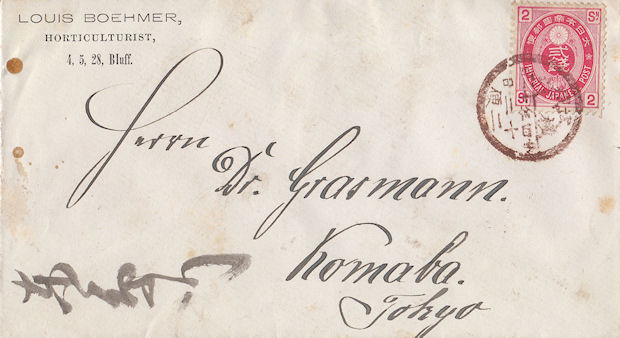 LOUIS BOEHMER,
HORTICULTURIST,
4, 5, 28, Bluff.
2 SN
大日本帝國郵便
貳錢
IMPERIAL JAPANESE POST
SN 2
Herrn
Dr. Grasmann.
Komaba.
Tokyo